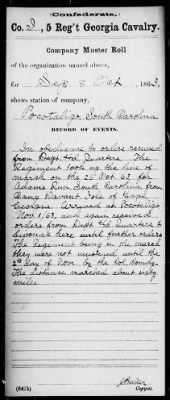 Confederate.
Co. I, 5 Reg't Georgia Cavalry.
Company Muster Roll
of the organization named above,
for Sep & Oct, 1863,
shows station of company,
Pocotaligo South Carolina
RECORD OF EVENTS.
In obedience to orders received
from Dept Hd Quarters The
Regiment took up the line of
march on the 26 Oct 63 for
Adams Run South Carolina from
Camp Davant Isle of Hope
Georgia Arrived at Pocotaligo
Nov 1/63, and again received
orders from Dept Hd Quarters to
bivouac here until further orders
The Regiment being on the march
they were not mustered until the
2d day of Nov by the Col Comdg.
The distance marched about sixty
miles
Copyist.